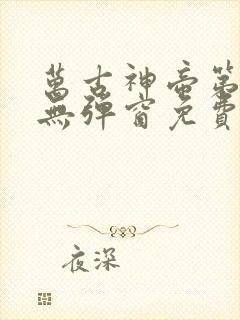 萬古神帝第
無彈窗免費
夜深